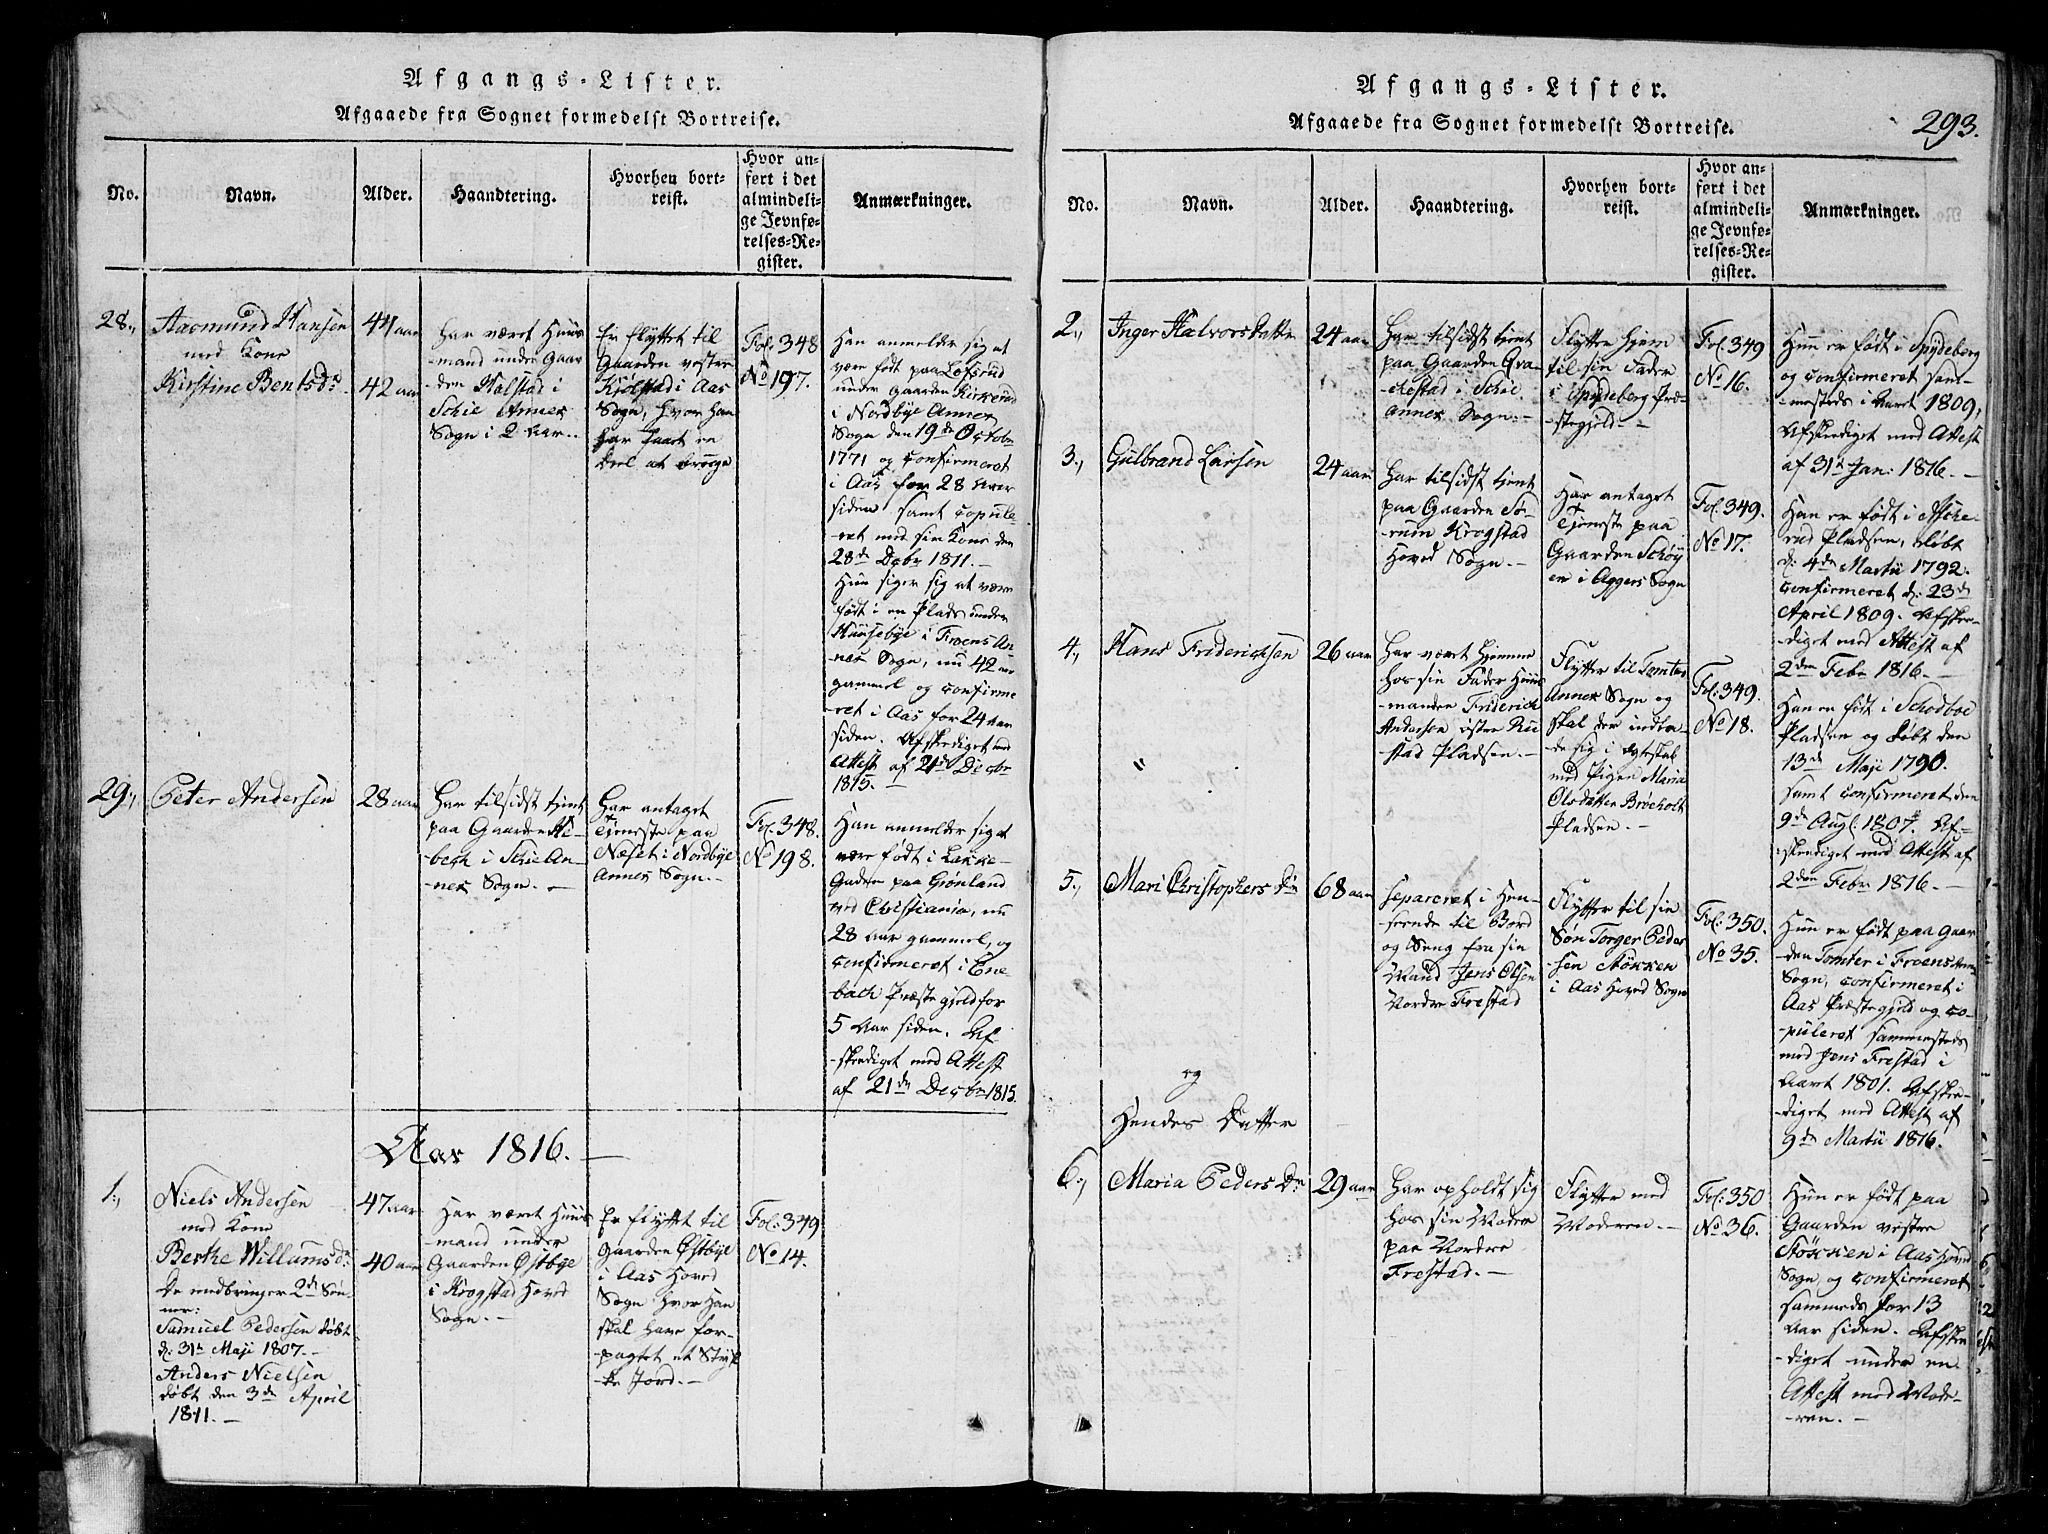 Afgangs-Lister.
Afgaaede fra Sognet formedelst Bortreise.
No.
Navn.
Alder.
Haandtering.
Hvorhen bort-
reist.
Hvor an-
ført i det
almindeli-
ge Jevnfø-
relses-Re-
gister.
Anmærkninger.
28.,
Aasmund Hansen
med Kone
Kirstine Bentsdr.
44 aar
42 aar
Har været Huus-
mand under Gaar
den Halstad i
Schie Annex
Sogn i 2 Aar.
Er flyttet til
Gaarden vestre
Kjølstad i Aas
Sogn, hvor han
har faaet en
Deel at bruge
Fol: 348
No 197.
Han anmelder sig at
være født paa Løfsrud
under Gaarden Kirkerud
i Nordbye Annex
Sogn den 19de Octobr
1771 og confirmeret
i Aas for 28 Aar
siden samt copule-
-ret med sin Kone den
28de Decbr 1811.-
Hun siger sig at være
født i en Plads under
Huusebye i Froens An-
nex Sogn, nu 42 aar
gammel og confirme
-ret i Aas for 24 aar
siden. Afskediget med
Attest af 21de Decbr
1815.-
29.,
Peter Andersen
28 aar
Har tilsidst tjent
paa Gaarden
bech i Schie An-
nex Sogn.-
Har antaget
Tjeneste paa
Næset i Nordbye
Annex Sogn.-
Fol. 348.
No 198.
Han anmelder sig at
være født i Lakke-
Gaden paa Grønland
ved Christiania, nu
28 Aar gammel, og
confirmeret i Ene-
bach Præstegjeld for
5 Aar siden. Af-
-skediget med Attest
af 21de Decbr 1815.
Aar 1816.-
1.,
Niels Andersen
med Kone
Berthe Willumsdr
De medbringer 2de Søn-
ner:
Samuel Pedersen døbt
d: 31te Maji 1807.-
Anders Nielsen
døbt den 3de April
1811.-
47 aar
40 aar
Har været Huus
mand under
Gaarden Østbye
i Krogstad Hoved
Sogn.-
Er flyttet til
Gaarden Østbye
i Aas Hoved
Sogn hvor han
skal have for-
pagtet et Styk-
ke Jord.-
Fol: 349
No 14.
Afgangs-Lister.
Afgaaede fra Sognet formedelst Bortreise.
293.
No.
Navn.
Alder.
Haandtering.
Hvorhen bort-
reist.
Hvor an-
ført i det
almindeli-
ge Jevnfø-
relses-Re-
gister.
Anmærkninger.
2.,
Inger Halvorsdatter
24 aar
Har tilsidst tjent
paa Gaarden
i Schie
annex Sogn.-
Flytter hjem
til sin Fader
i Spydeberg Præ-
stegjeld.-
Fol. 349
No 16.
Hun er født i Spydeberg
og confirmeret sam-
-mesteds i Aaret 1809,
Afskediget med Attest
af 31te Jan: 1816.-
3.,
Gulbrand Larsen
24 aar
Har tilsidst tjent
paa Gaarden Sø-
rum Krogstad
Hoved Sogn.-
Har antaget
Tjeneste paa
Gaarden Schøy
en i Aggers Sogn
Fol. 349.
No 17.
Han er født i Asche-
rud Pladsen, døbt
d: 4de Martii 1792.
confirmeret d: 23de
April 1809. Afske-
-diget med Attest af
2den Febr 1816.-
4.,
Hans Friderichsen
"
26 aar
Har været hjemme
hos sin Fader Huus
manden Friderich
Andersen østre Ru
stad Pladsen.-
Flytter til Tomter
Annex Sogn og
skal der indla-
de sig i Egteskab
med Pigen Maria
Olsdatter Brøcholt
Pladsen.-
Fol: 349.
No 18.
Han er født i Schodboe
Pladsen og døbt den
13de Maji 1790.
samt confirmeret den
9de Augl. 1807. Af-
-skediget med Attest af
2den Febr 1816.-
5.,
Mari Christophers Dr
68 aar
Separeret i Hen-
seende til Bord
og Seng fra sin
Mand Jens Olsen
Nordre Frestad
Flytter til sin
Søn Torger Peder
sen Støkken
i Aas Hoved Sogn
Fol: 350.
No 35.
Hun er født paa Gaar
den Tomter i Froens Annex
Sogn, confirmeret i
Aas Præstegjeld og co-
-puleret sammesteds
med Jens Frestad i
Aaret 1801. Afske-
-diget med Attest af
9de Martii 1816.
og
Hendes Datter
6.,
Maria Peders Dr
29 aar
Har opholdt sig
hos sin Moder
paa Nordre
Frestad.-
Flytter med
Moderen.-
Fol: 350
No 36.
Hun er født paa
Gaarden vestre
Støkken i Aas Hoved
Sogn, og confirmeret
sammeds for 13
Aar siden. Afske-
-diget under en
Attest med Mode-
-ren.-